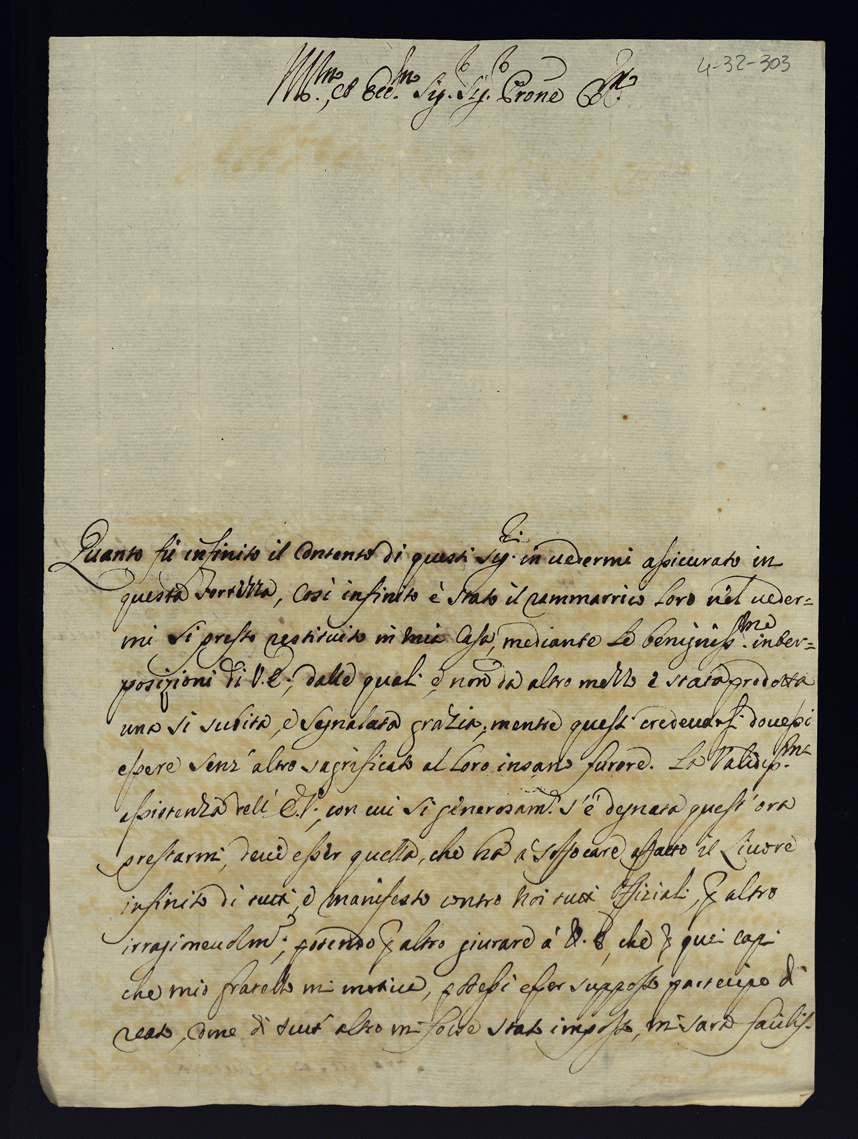 4-32-303
Ill.mo, ed Ecc.mo Sig.r Sig.r Prone
Quanto fù infinito il contento di questi Sig.ri in uedermi assicurato in
questa Fortezza, così infinito è stato il rammarrico loro nel ueder=
mi sì presto restituito in mia Casa, mediante le benigniss.me inter=
posizioni di V.E., dalle quali, e non da altro mezzo è stata prodotta
una sì subita, e segnalata grazia, mentre questi credeuasi douessi
essere senz'altro sagrificato al loro insano furore. La Validiss.ma
assistenza dell'E.V., con cui sì generosam.e s'è degnata quest'ora
prestarmi, deue esser quella, che ha à soffocare affatto il Liuore
infinito di tutti, e manifesto contro noi tutti Offiziali, per altro
irragioneuolm.e; potendo per altro giurare à V.E., che per quei capi
che mio fratello mi motiua, potessi esser supposto partecipe di
reato, come di tutt'altro mi fosse stato imposto, mi sarà facilis.